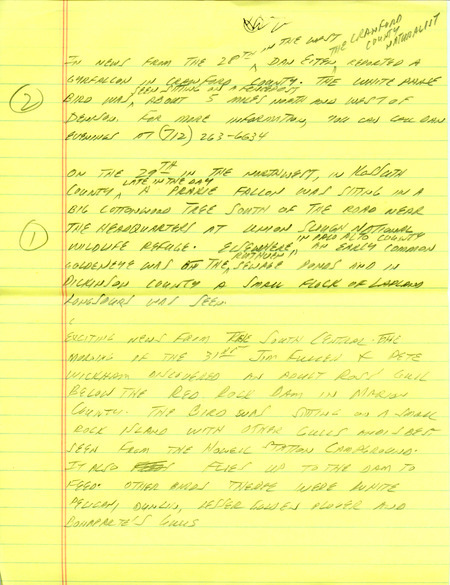 IN THE WEST
THE CRAWFORD
COUNTY
NATURALIST
IN NEWS FROM THE 28TH DAN reported A
GYRFALCON IN CRAWFORD COUNTY. THE WHITE PHASE
SEEN SITTING ON A FENCEPOST
BIRD WAS ABOUT 5 MILES NORTH AND WEST OF
② DENISON. FOR MORE INFORMATION, YOU CAN CALL DAN
EVENINGS AT (712) 263-6634
ON THE 29TH IN THE NORTHWEST, IN KOSSUTH
LATE IN THE DAY
COUNTY, A PRAIRIE FALCON WAS SITING IN A
BIG COTTONWOOD TREE SOUTH OF THE ROAD NEAR
① THE HEADQUARTERS AT UNION SLOUGH NATIONAL
IN PALO ALTO COUNTY
WILDLIFE REFUGE. ELSEWHERE, AN EARLY COMMON
RUTHVEN
GOLDENEYE WAS ON THE SEWAGE PONDS AND IN
DICKINSON COUNTY A SMALL FLOCK OF LAPLAND
LONGSPURS WAS SEEN
EXCITING NEWS FROM THE SOUTH CENTRAL. THE
MORNING OF THE 31ST JIM FULLER & PETE
WICKHAM DISCOVERED AN ADULT ROSS' GULL
BELOW THE RED ROCK DAM IN MARION
COUNTY. THE BIRD WAS SITTING ON A SMALL
ROCK ISLAND WITH OTHER GULLS AND IS BEST
SEEN FROM THE HOWELL STATION CAMPGROUND.
IT ALSO FLIES UP TO THE DAM TO
FEED. OTHER BIRDS THERE WERE WHITE
PELICAN, DUNLIN, LESSER GOLDEN PLOVER AND
BONAPARTE'S GULLS